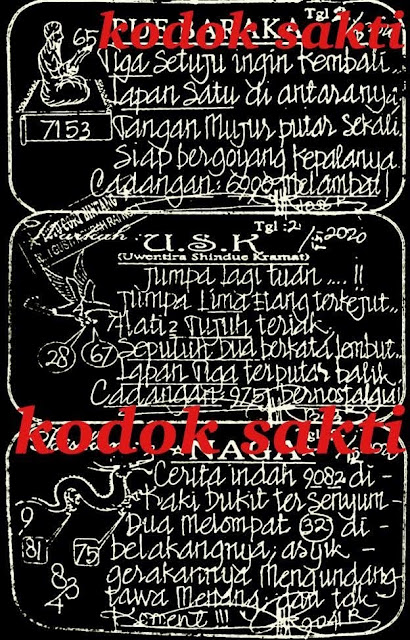 kodok sakti
PUE SARAKA Tgl 2/5
65
Tiga Setuju ingin kembali..
Lapan Satu di antaranya
7153
Tangan Mujur putar sekali
Siap bergoyang kepalanya
Cadangan: 6990 melambai!
U.S.K Tgl: 2/5 2020
(Uwentira Shindue Kramat)
Jumpa lagi tuan....!!
Jumpa Lima Elang terkejut..
Hati2 Tujuh teriak
28 67
Sepuluh Dua berkata lembut..
Lapan Tiga terputar balik
Cadangan: 9751 bernostalgia!
kodok sakti
NAGA Tgl 2
Cerita indah 9082 di -
Kaki bukit tersenyum -
9
Dua melompat 32 di -
81 75
belakangnya; asyik -
gerakannya mengundang
83
4
tawa menang; dan tak
Koment !!! 9041 R